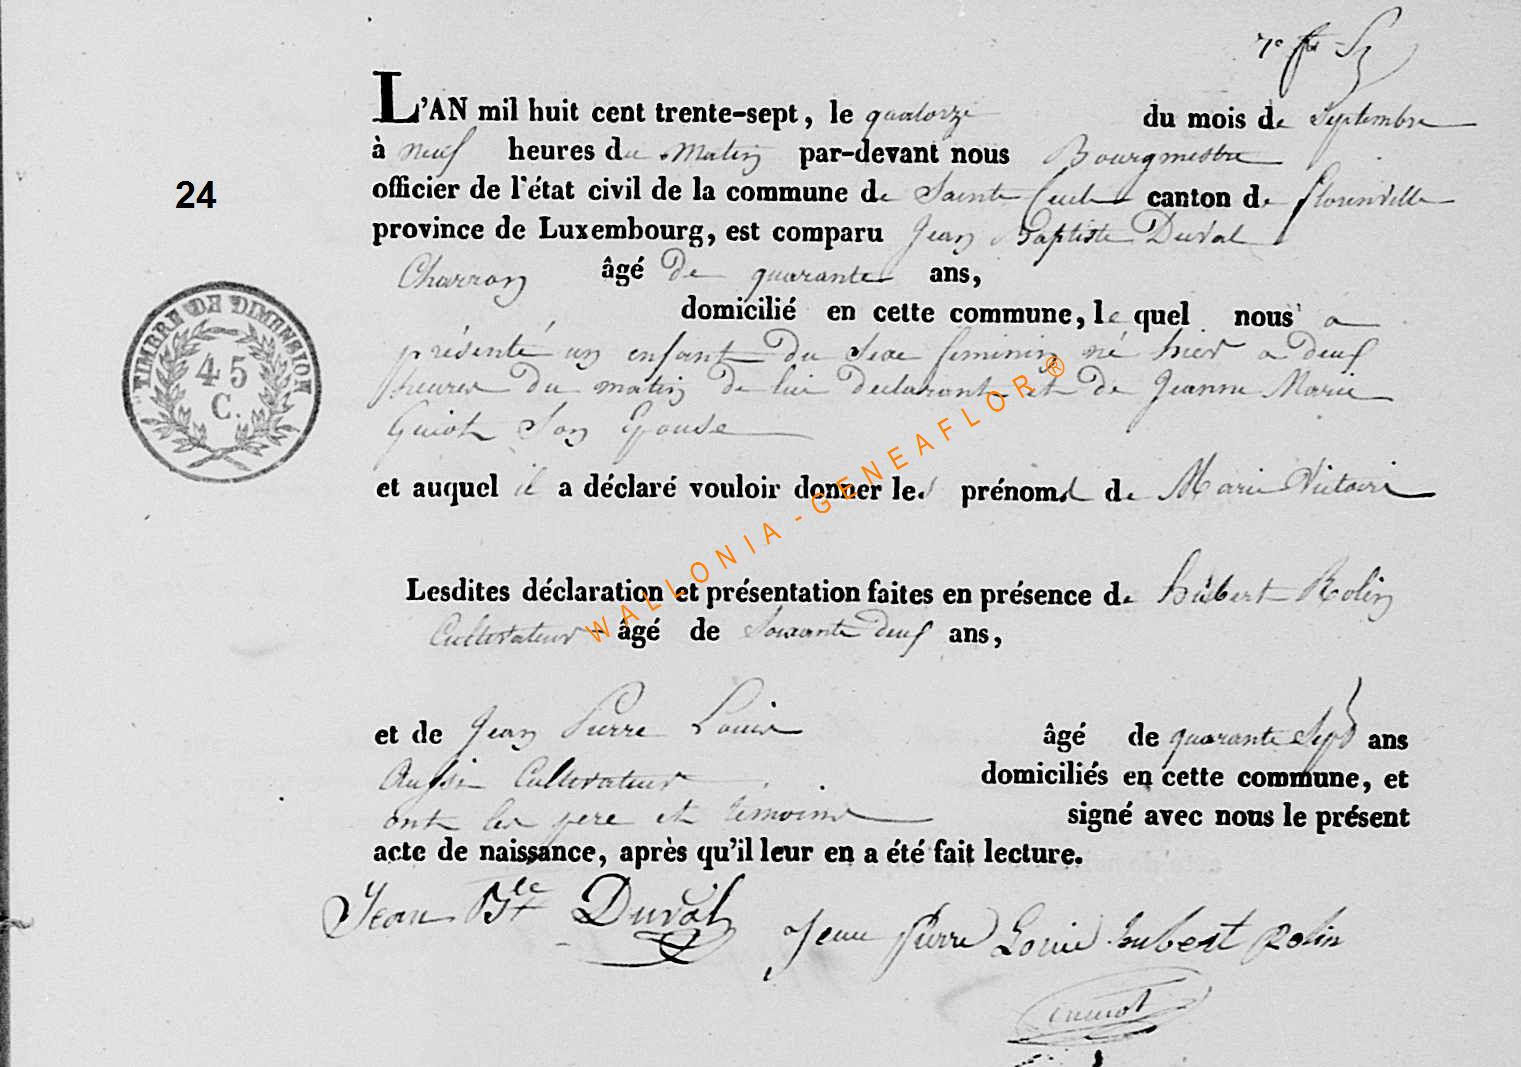 L'AN mil huit cent trente-sept, le quatorze du mois de Septembre
à neuf heures du Matin par-devant nous Bourgmestre
officier de l'état civil de la commune de Sainte Cecile canton de florenville
24
province de Luxembourg, est comparu Jean Baptiste Duval
Charron âgé de quarante ans,
domicilié en cette commune, le quel nous a
TIMBRE DE DIMENSION
45
C.
présenté un enfant du Sexe féminin né hier a deux
heures du matin de lui declarant et de Jeanne Marie
Guiot Son Epouse
et auquel il a déclaré vouloir donner les prénoms de Marie Victoire
WALLONIA-GENEAFLOR®
Lesdites déclaration et présentation faites en présence de hubert Rolin
Cultivateur âgé de Soixante deux ans,
et de Jean Pierre Louis âgé de quarante Sept ans
Aussi Cultivateur domiciliés en cette commune, et
ont les pere et témoins signé avec nous le présent
acte de naissance, après qu'il leur en a été fait lecture.
Jean Bte Duval Jean Pierre Louis hubert Rolin